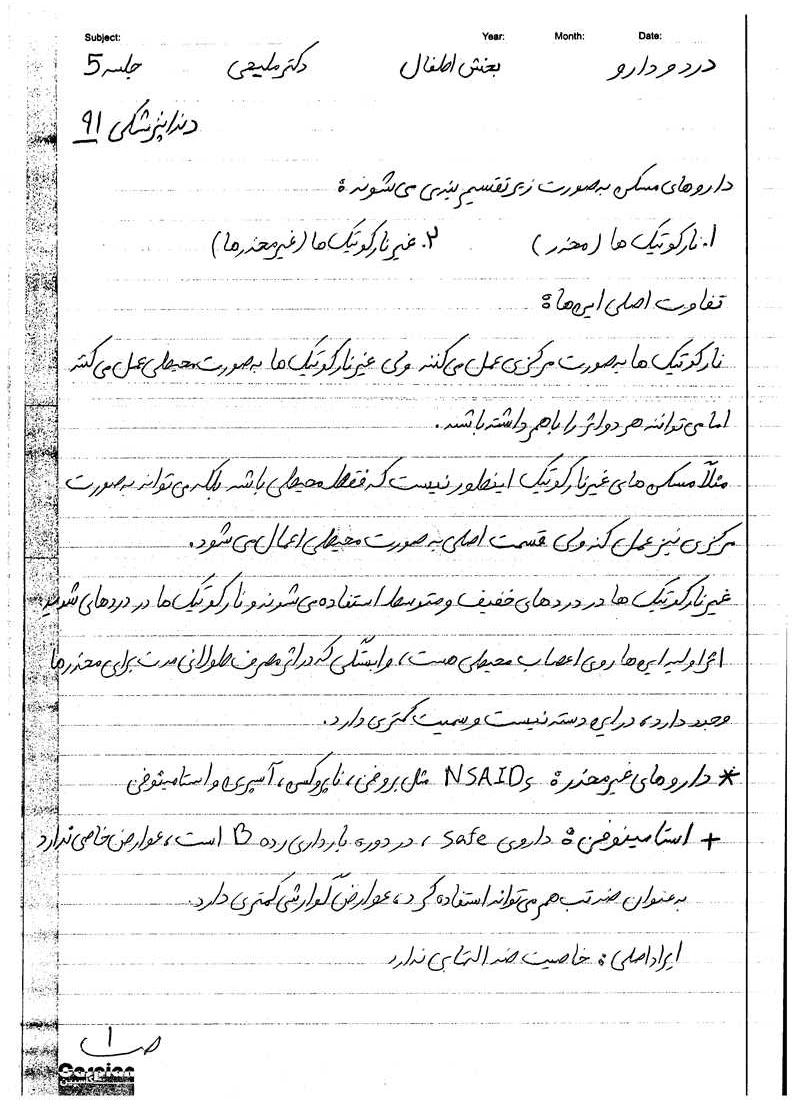 Subject: Year: Month: Date:
درد و دارو بخش اطفال دکتر ملیحی جلسه 5
دندانپزشکی ۹۱
داروهای مسکن به صورت زیر تقسیم بندی می شوند:
۱. نارکوتیک ها (مخدر) ۲. غیر نارکوتیک ها (غیر مخدرها)
تفاوت اصلی این ها:
نارکوتیک ها به صورت مرکزی عمل می کنند ولی غیر نارکوتیک ها به صورت محیطی عمل می کنند
اما می توانند هر دو اثر را با هم داشته باشند.
مثلاً مسکن های غیر نارکوتیک اینطور نیست که فقط محیطی باشد بلکه می تواند به صورت
مرکزی نیز عمل کند ولی قسمت اصلی به صورت محیطی اعمال می شود.
غیر نارکوتیک ها در دردهای خفیف و متوسط استفاده می شوند و نارکوتیک ها در دردهای شدید
اثر اولیه این ها روی اعصاب محیطی هست، وابستگی که در اثر مصرف طولانی مدت برای مخدرها
وجود دارد، در این دسته نیست و سمیت کمتری دارد.
* داروهای غیر مخدر: NSAIDs مثل بروفن، ناپروکسن، آسپرین و استامینوفن
+ استامینوفن: داروی safe، در دوره بارداری رده B است، عوارض خاصی ندارد
به عنوان ضد تب هم می تواند استفاده کرد، عوارض گوارشی کمتری دارد.
ایراد اصلی: خاصیت ضد التهابی ندارد
ص ۱